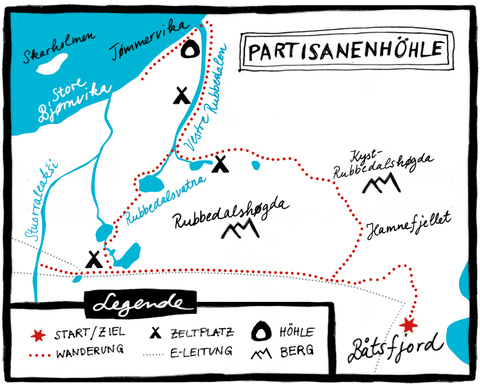 PARTISANENHÖHLE
Skarholmen
Tømmervika
Store
Bjørnvika
Vestre Rubbedalen
Kyst-
Rubbedalshøgda
Stuorrateakši
Rubbedalsvatna
Rubbedalshøgda
Hamnefjellet
Båtsfjord
Legende
START/ZIEL
ZELTPLATZ
HÖHLE
WANDERUNG
E-LEITUNG
BERG